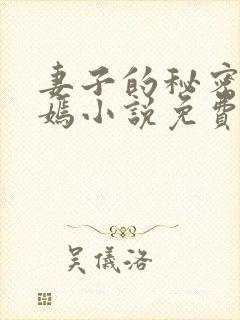 妻子的秘密
媽小說免費
吴儀洛